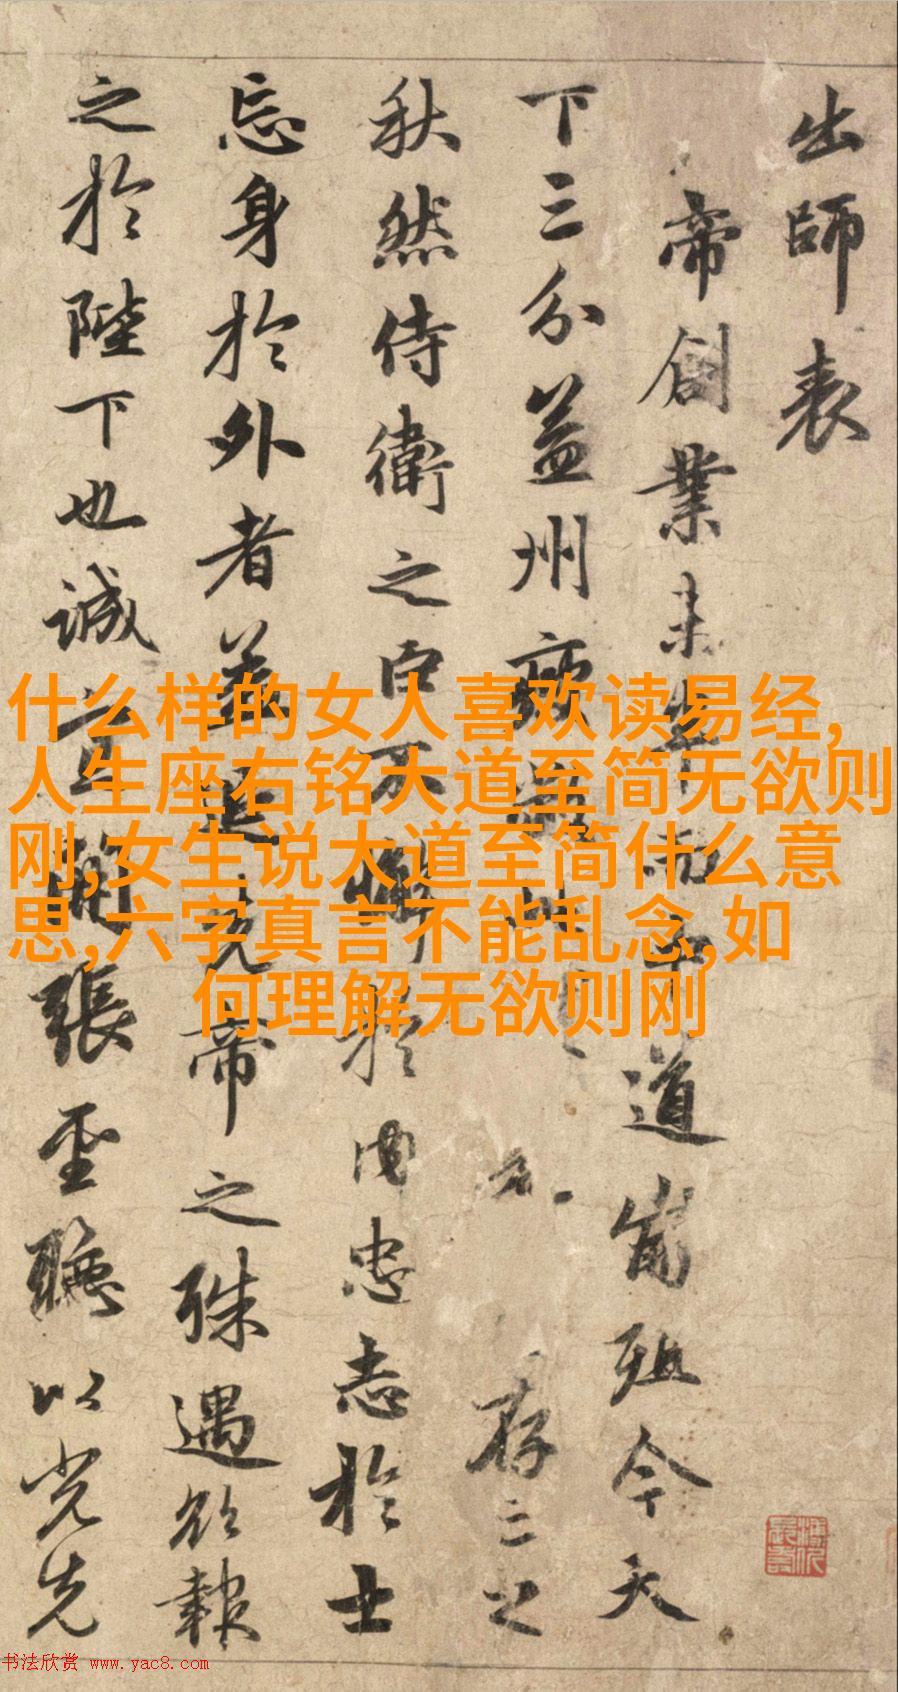 出師表
帝創業未半而中道崩殂今天
下三分益州疲存亡之
秋然侍衛之臣不懈於内忠志於士
忘身於外者蓋追先帝之殊遇欲報
之於陛下也誠宜開張聖聽以光先
什么样的女人喜欢读易经,
人生座右铭大道至简无欲则
刚,女生说大道至简什么意
思,六字真言不能乱念,如
何理解无欲则刚
书法欣赏 www.yac8.com